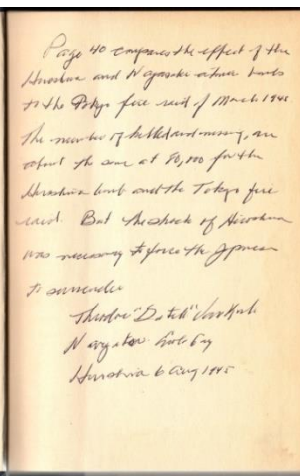 Page 40 compares the effect of the
Hiroshima and Nagasaki atomic bombs
to the Tokyo fire raid of March 1945
The number of killed and missing, are
about the same at 80,000 for the
Hiroshima bomb and the Tokyo fire
raid. But the shock of Hiroshima
was necessary to force the Japanese
to surrender
Theodore "Dutch" VanKirk
Navigator Enola Gay
Hiroshima 6 Aug 1945